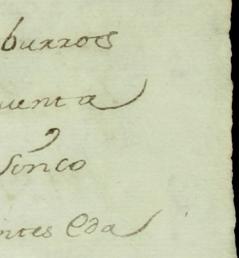 burros
uenta
Sinco
ntes Eda